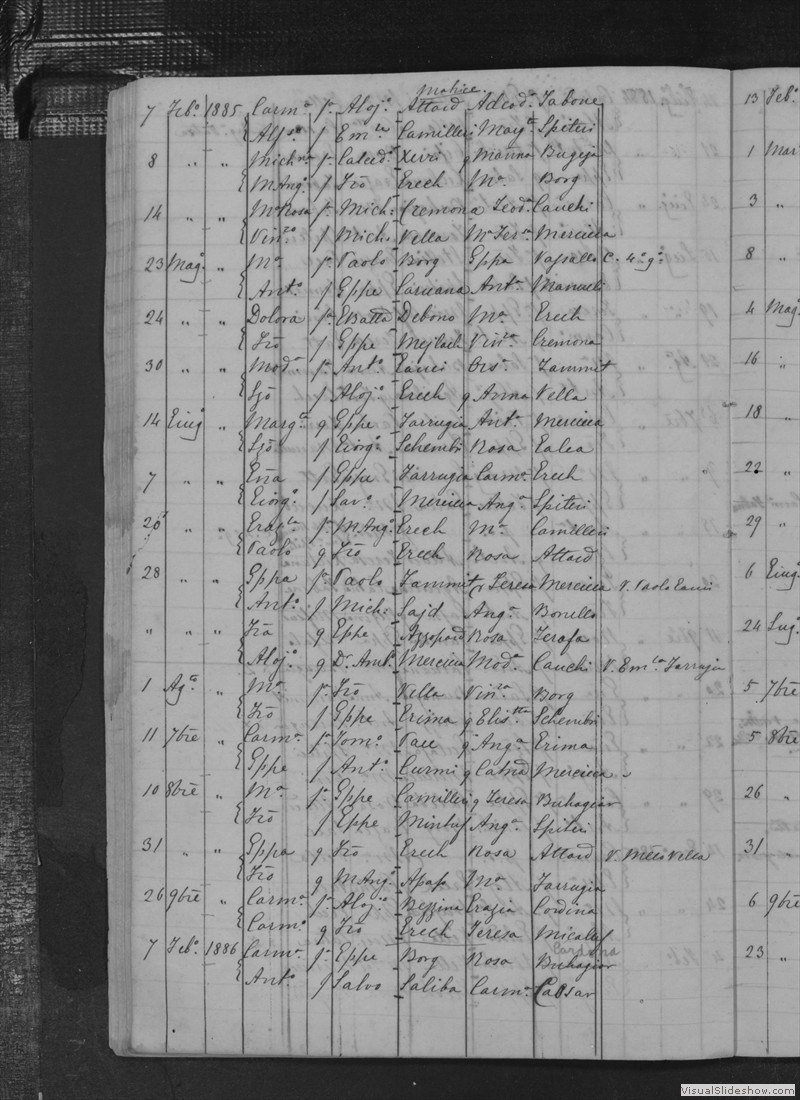 Mohice
7 Feb.º 1885 Carmª fª Alojº Attard Adeodª Tabone
Alfº f Emla Camilleri Margta Spiteri
8 " " Michna fª Calcedº Xeri q Marina Bugeja
MAngº f Frõ Grech Mª Borg
14 " " Mª Rosa fª Mich: Cremona Teodª Cauchi
Vinº f Mich: Vella Mª Teresª Mercieca
23 Magº " Mª fª Paolo Borg Gppa Vassallo C. 4º gº
Antº f Gppe Caruana Antª Manueli
24 " " Dolora fª GBatta Debono Mª Grech
Frõ f Gppe Mejlach Vinª Cremona
30 " " Modª fª Antº Gauci Orsª Zammit
f Alojº Grech q Anna Vella
14 Giugº " Margta q Gppe Farrugia Antª Mercieca
f Giorgº Schembri Rosa Galea
7 " " f Gppe Farrugia Carmª Grech
Giorgº f Savº Mercieca Angª Spiteri
20 " " Grazla fª MAngº Grech Mª Camilleri
Paolo q Frõ Grech Rosa Attard
28 " " Gppa fª Paolo Zammit q Teresa Mercieca V. Paolo Gauci
Antº f Mich: Sajd Angª Bonello
" " " Frã q Gppe Azzopard Rosa Zerafa
Alojº q Dr. Ambº Mercieca Modª Cauchi V. Emla Farrugia
1 Agto " Mª fª Frõ Vella Vinta Borg
Frõ f Gppe Grima q Elistta Schembri
11 7bre " Carmª fª Tomº Pace q Angª Grima
Gppe f Antº Curmi q Catna Mercieca
10 8bre " Mª fª Gppe Camilleri q Teresa Buhagiar
Frõ f Gppe Mintuf Angª Spiteri
31 " " Gppa q Frõ Grech Rosa Attard V. Vella
Frõ q MAngº Apap Mª Farrugia
26 9bre " Carmª fª Alojº Bezzina Grazia Cordina
Carmº q Frõ Grech Teresa Micallef
7 Febº 1886 Carmª fª Gppe Borg Rosa Buhagiar
Antº f Salvo Saliba Carmª Cassar
13 Febº
1 Mar
3 "
8 "
4 Magº
16 "
18 "
22 "
29 "
6 Giugº
24 Lugº
5 7bre
5 8bre
26 "
31 "
6 9bre
23 "
VisualSlideshow.com